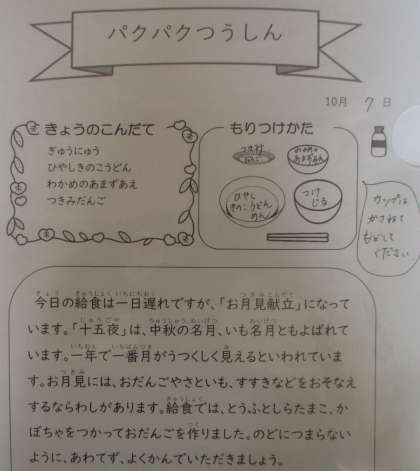 パクパクつうしん
10月 7日
きょうのこんだて
ぎゅうにゅう
ひやしきのこうどん
わかめのあまずあえ
つきみだんご
もりつけかた
つきみ
だんご
わかめの
あまずあえ
ひやし
きのこうどん
めん
つけ
じる
カップは
かさねて
もどして
ください
今日の給食は一日遅れですが、「お月見献立」になって
います。「十五夜」は、中秋の名月、いも名月ともよばれて
います。一年で一番月がうつくしく見えるといわれていま
す。お月見には、おだんごやさといも、すすきなどをおそなえ
するならわしがあります。給食では、とうふとしらたまこ、か
ぼちゃをつかっておだんごを作りました。のどにつまらない
ように、あわてず、よくかんでいただきましょう。